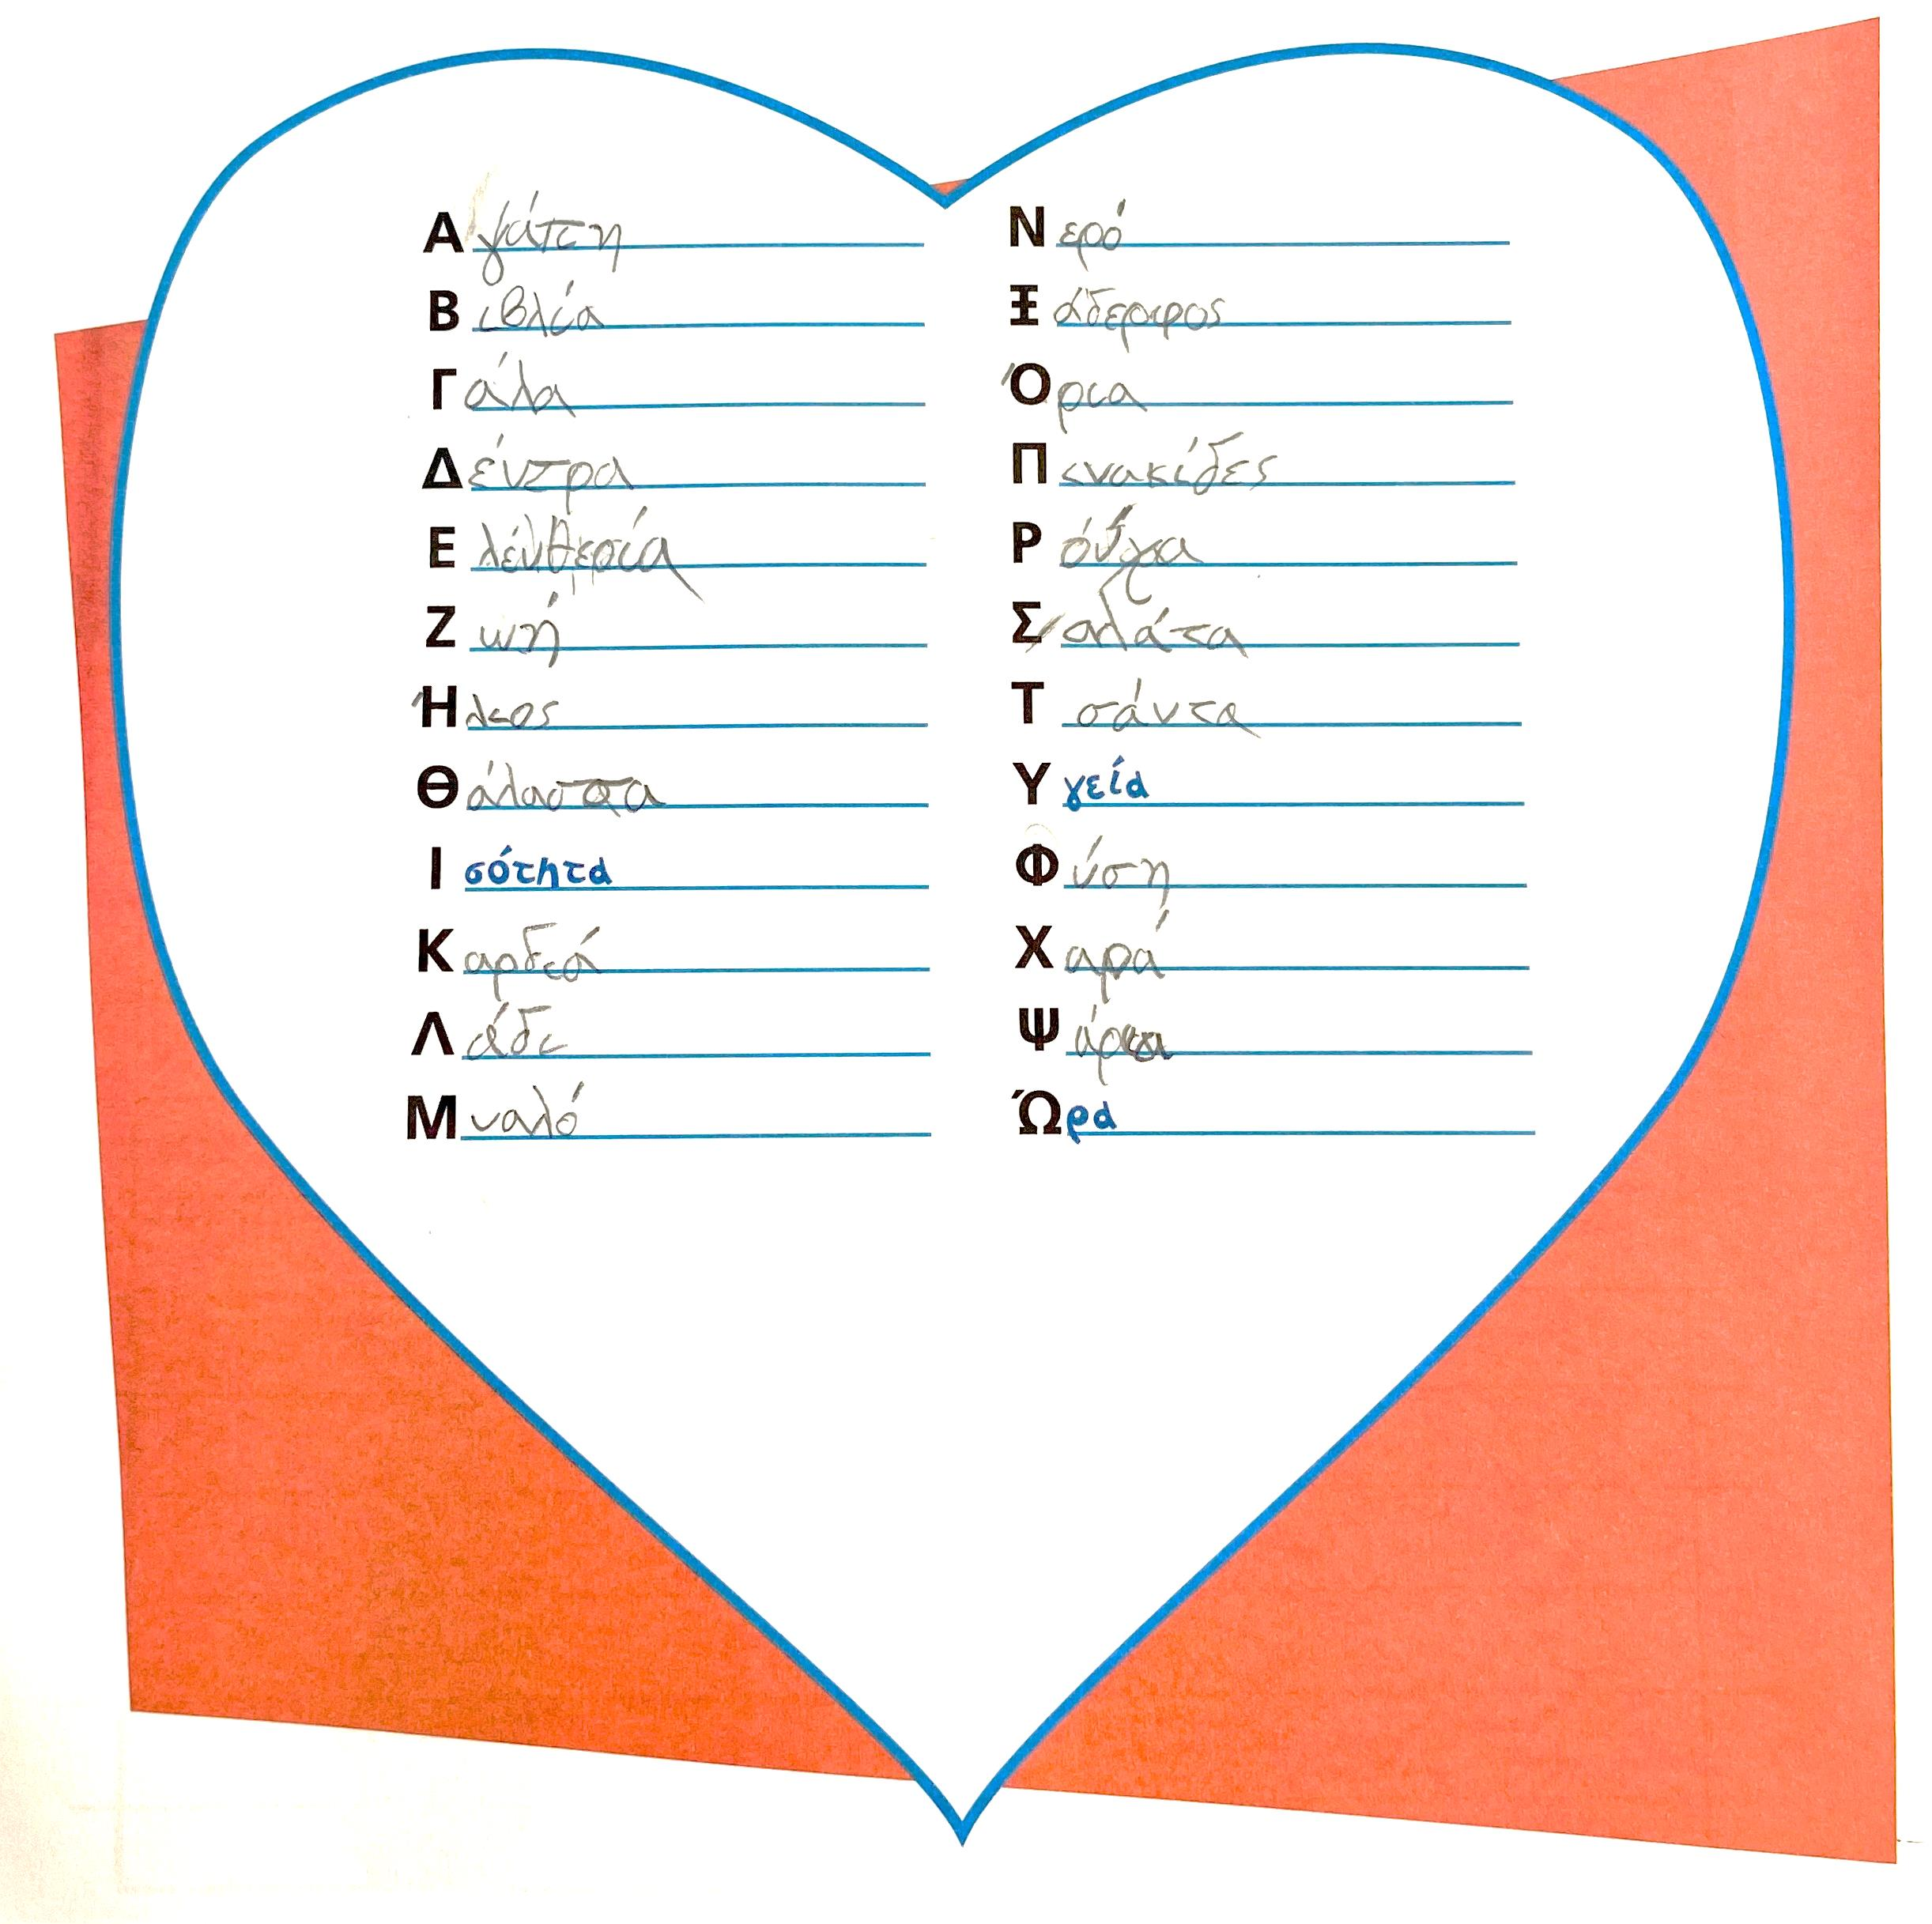 Αγάπη
Βιβλία
Γάλα
Δέντρα
Ελέυθερία
Ζωή
Ήλιος
Θάλασσα
Ισότητα
Καρδιά
Λάδι
Μυαλό
Νερό
Ξάδερφος
Όρια
Πινακίδες
Ρούχα
Σαλάτα
Τσάντα
Υγεία
Φύση
Χαρά
Ψάρια
Ώρα